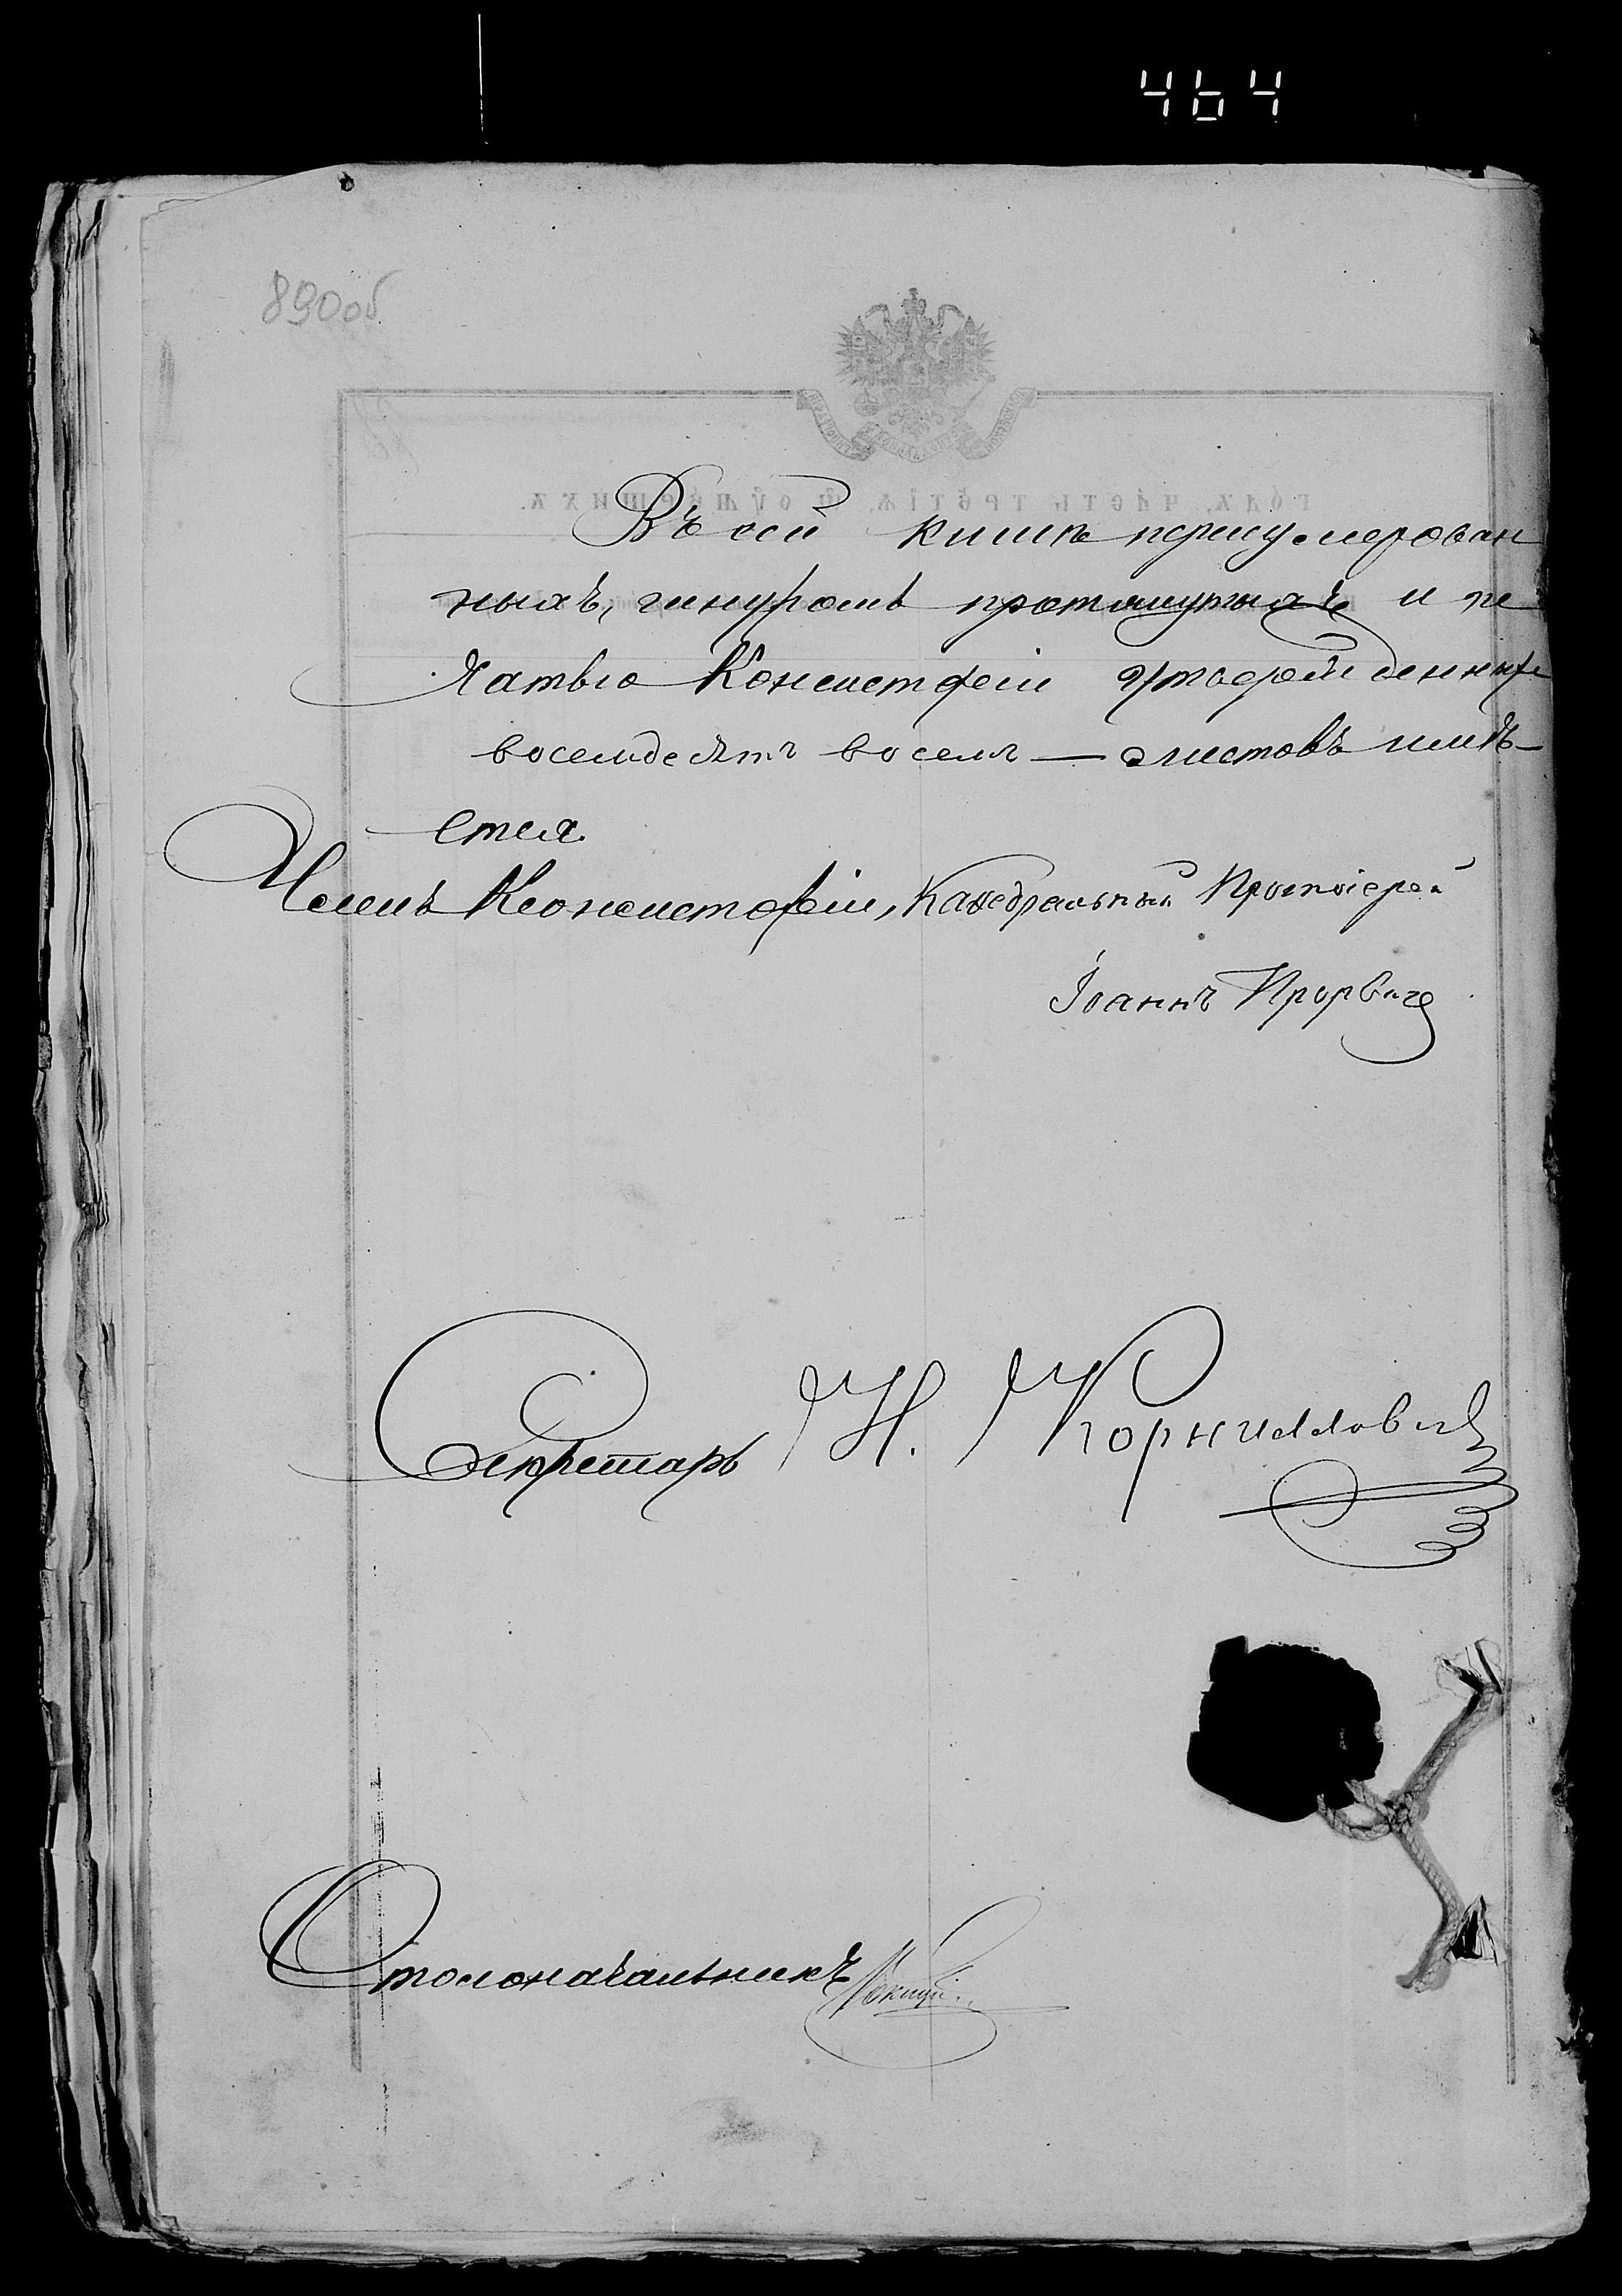 464
890об
Въ сей книгѣ перенумерован
ныхъ, шнуромъ протянутыхъ и пе
чатью Консисторіи утвержденныхъ
восемьдесятъ восемь — листовъ имѣ-
ется
Членъ Консисторіи, Каѳедральный Протоіерей
Іоаннъ
Секретарь Н. Корниллович
Столоначальникъ